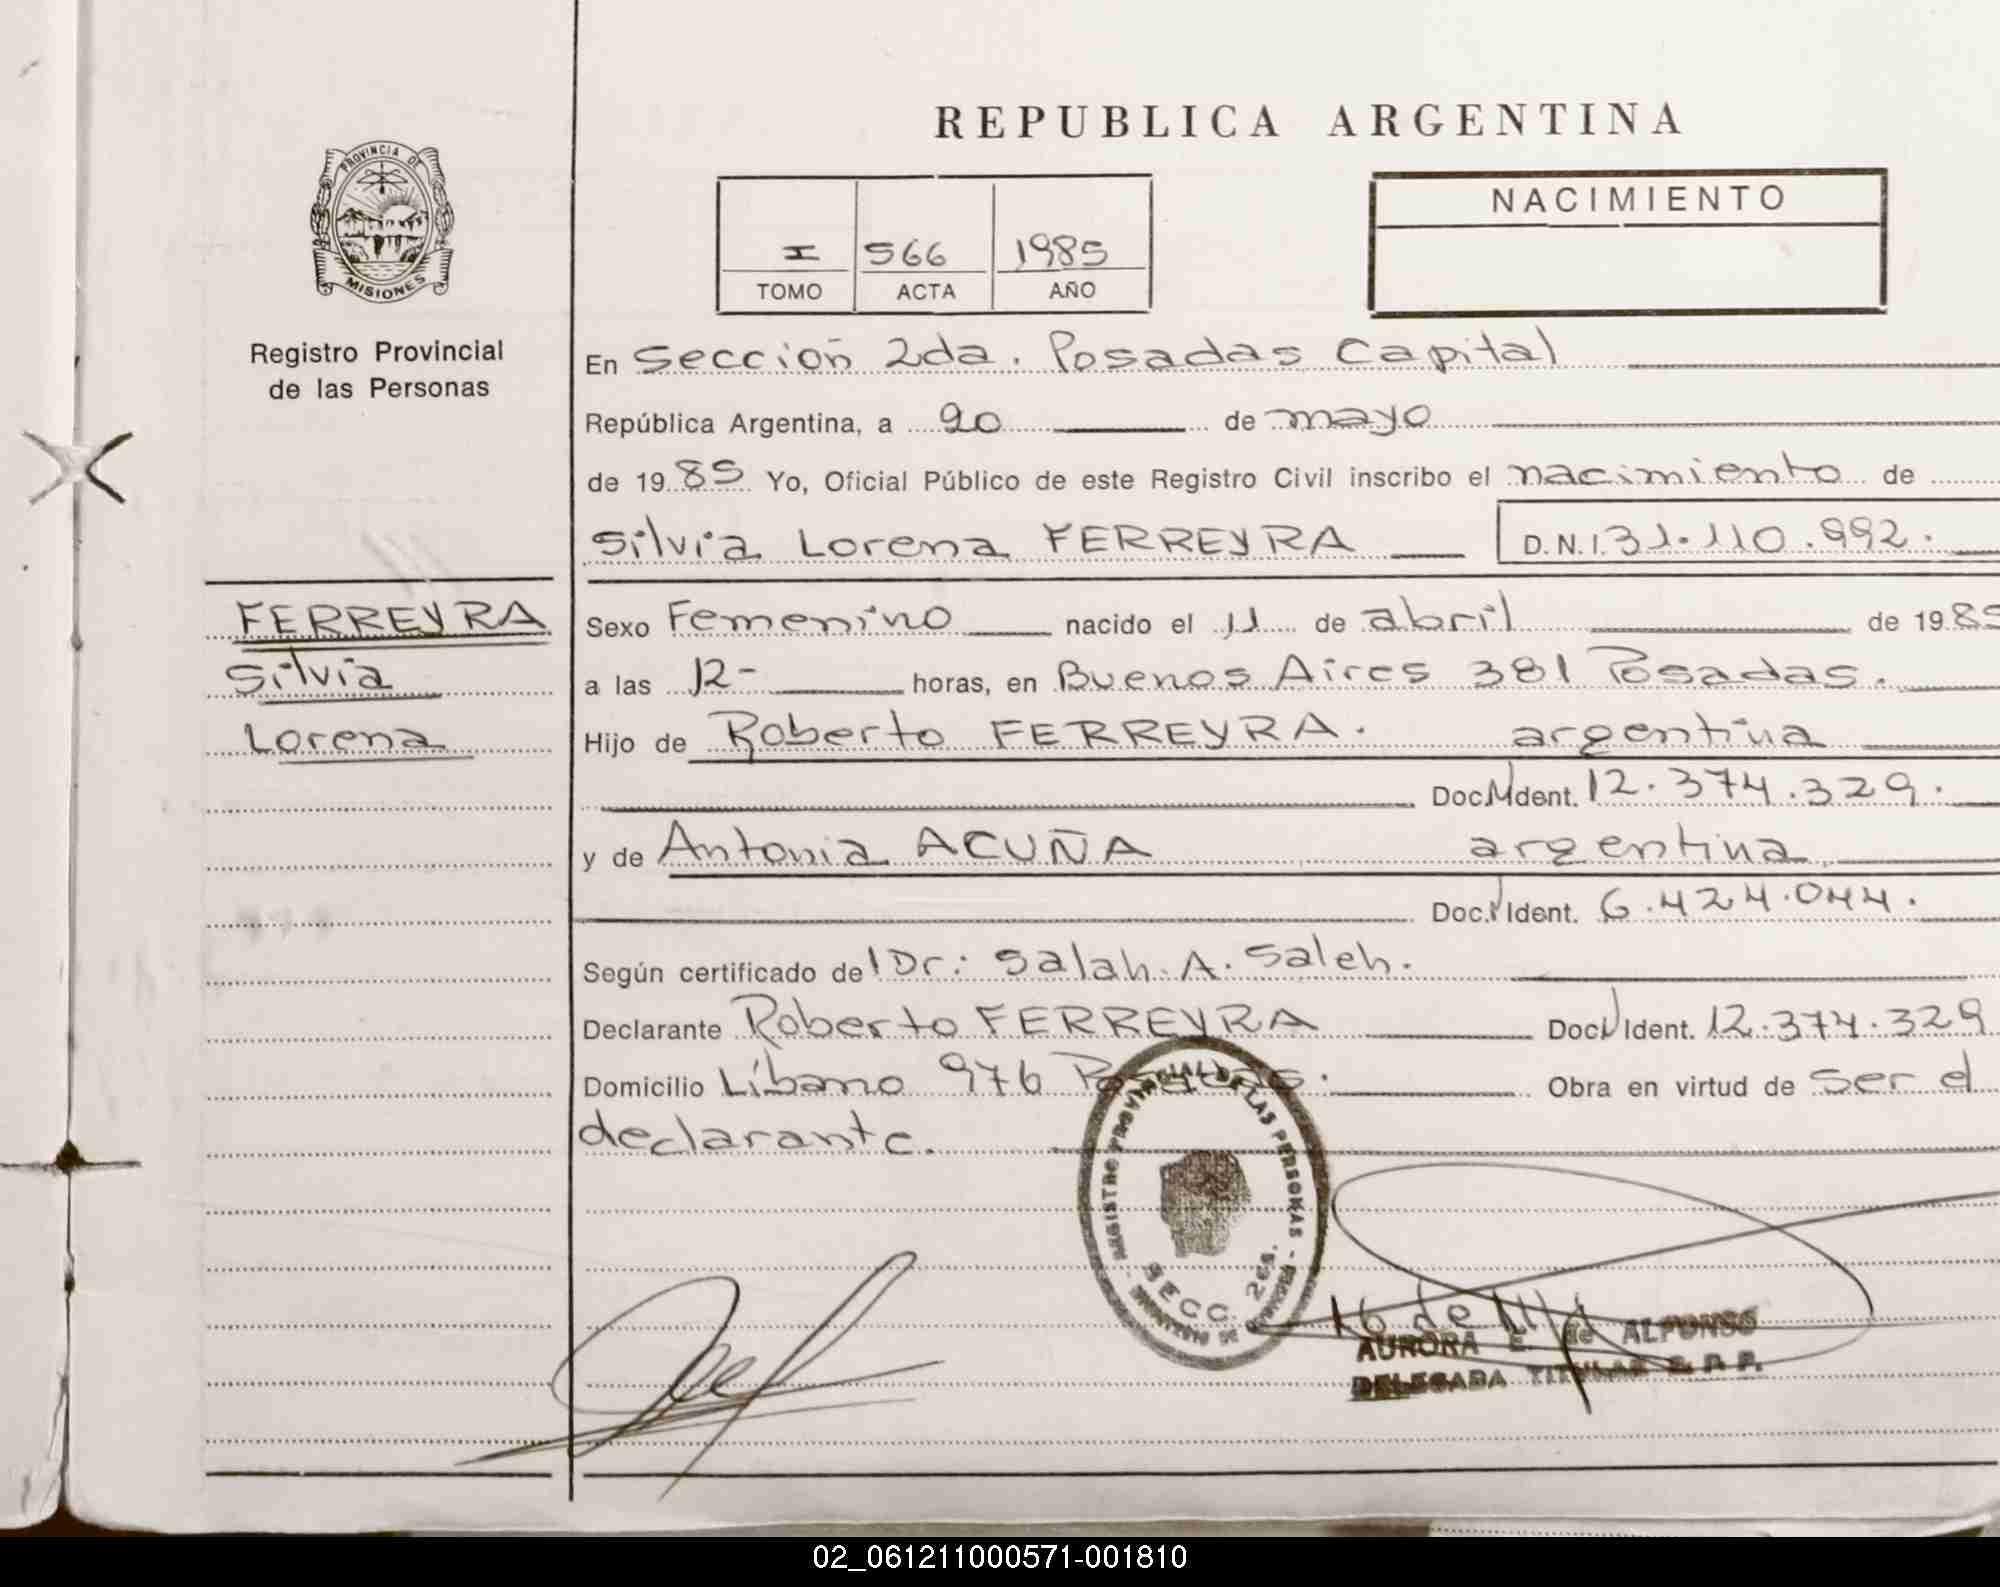 REPUBLICA ARGENTINA
PROVINCIA DE
MISIONES
Registro Provincial
de las Personas
I 566 1985
TOMO ACTA AÑO
NACIMIENTO
En Sección 2da. Posadas Capital
República Argentina, a 20 de mayo
de 1985 Yo, Oficial Público de este Registro Civil inscribo el nacimiento de
Silvia Lorena FERREYRA D.N.I. 31.110.992.
FERREYRA
Silvia
Lorena
Sexo Femenino nacido el 11 de abril de 1985
a las 12- horas, en Buenos Aires 381 Posadas.
Hijo de Roberto FERREYRA. argentina
Doc. N Ident. 12.374.329.
y de Antonia ACUÑA argentina
Doc. Ident. 6.424.044.
Según certificado de Dr: Salah. A. Saleh.
Declarante Roberto FERREYRA Doc. Ident. 12.374.329
Domicilio Líbano 976 Posadas. Obra en virtud de ser el
declarante.
REGISTRO PROVINCIAL DE LAS PERSONAS
SECC. 2da.
AURORA E. de ALFONSO
DELEGADA TITULAR R. P. P.
02_061211000571-001810